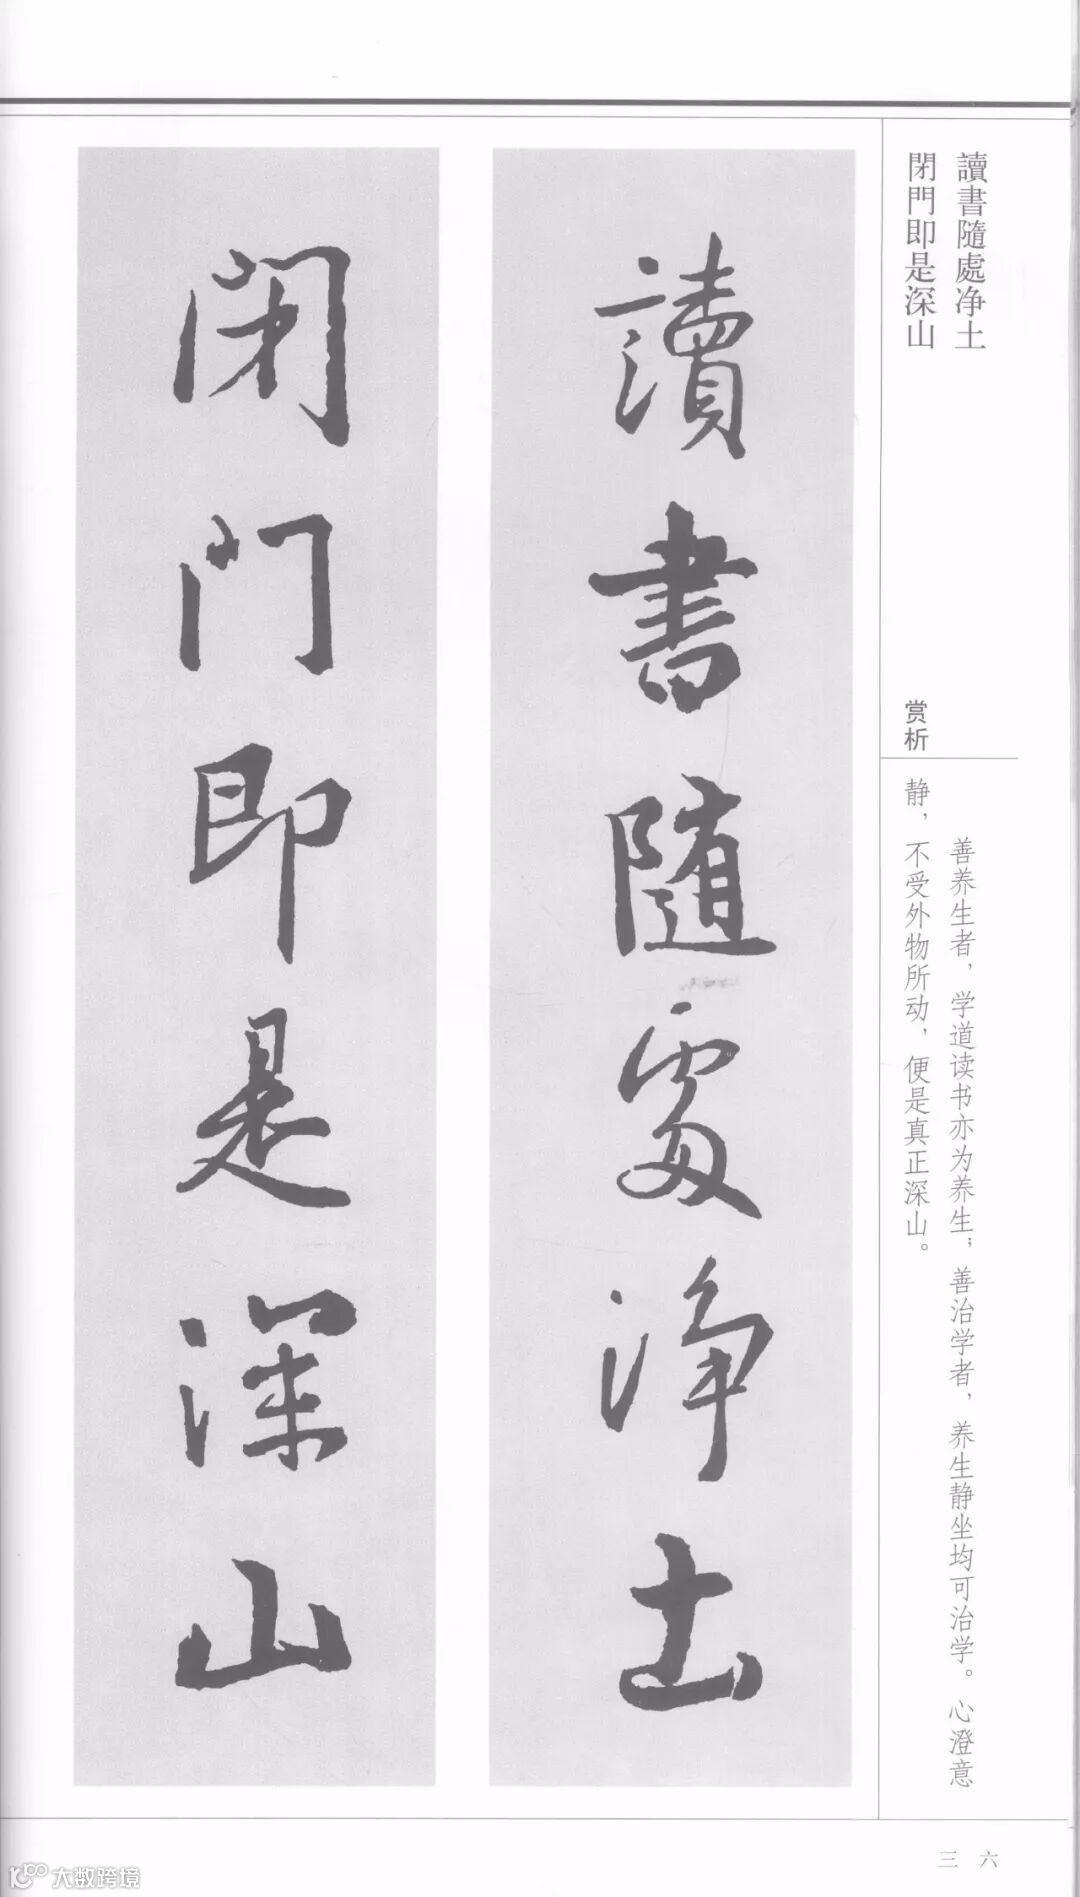 讀書隨處净土
閉門即是深山
赏析
善养生者，学道读书亦为养生；善治学者，养生静坐均可治学。心澄意
静，不受外物所动，便是真正深山。
讀書隨處净土
閉門即是深山
三六
大数跨境